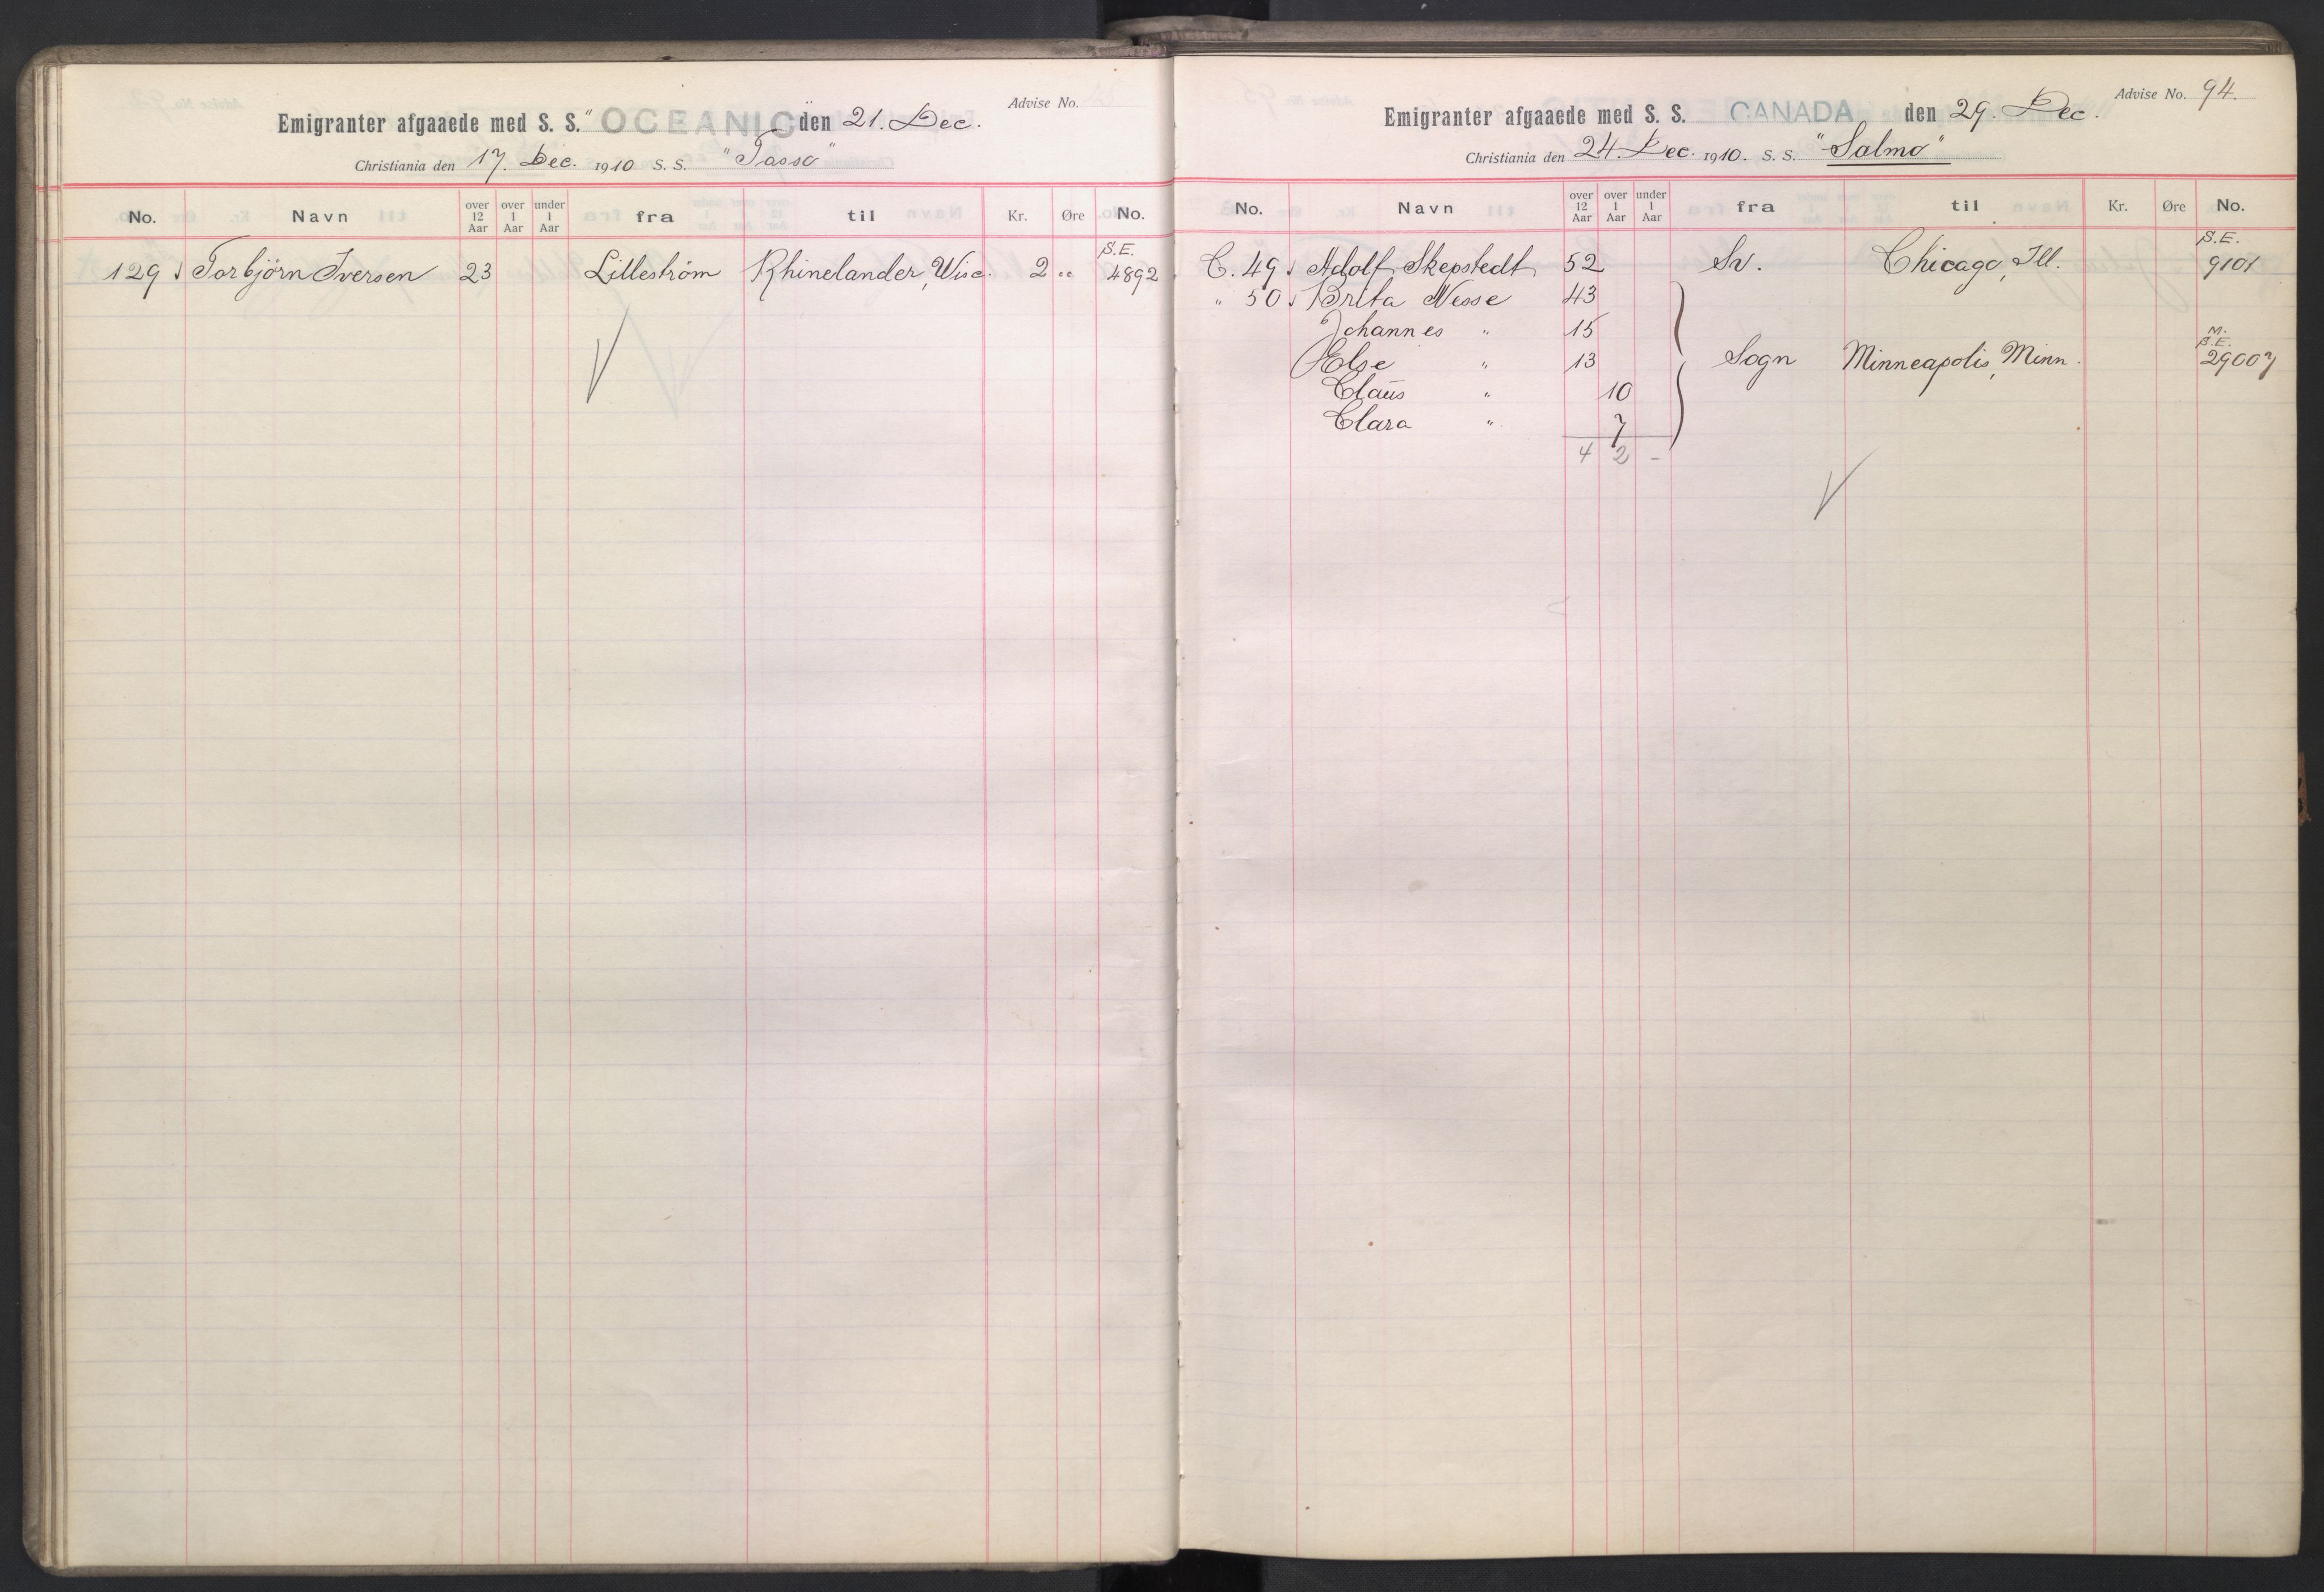 Advise No.
Emigranter afgaaede med S. S. "OCEANIC" den 21. Dec.
Christiania den 17. Dec. 1910 S. S. "Tasso"
No. Navn over 12 Aar over 1 Aar under 1 Aar fra til Kr. Øre No.
S.E.
129 Torbjörn Iversen 23 Lilleström Rhinelander, Wisc. 2 " 4892
Advise No. 94.
Emigranter afgaaede med S. S. CANADA den 29. Dec.
Christiania den 24. Dec. 1910. S. S. "Salmo"
No. Navn over 12 Aar over 1 Aar under 1 Aar fra til Kr. Øre No.
S.E.
C. 49 Adolf Skepstedt 52 Sv. Chicago, Ill. 9101
" 50 Brita Nesse 43
Johannes " 15
M.
S.E.
Else " 13 Sogn Minneapolis, Minn. 29007
Claus " 10
Clara " 7
4 2 -